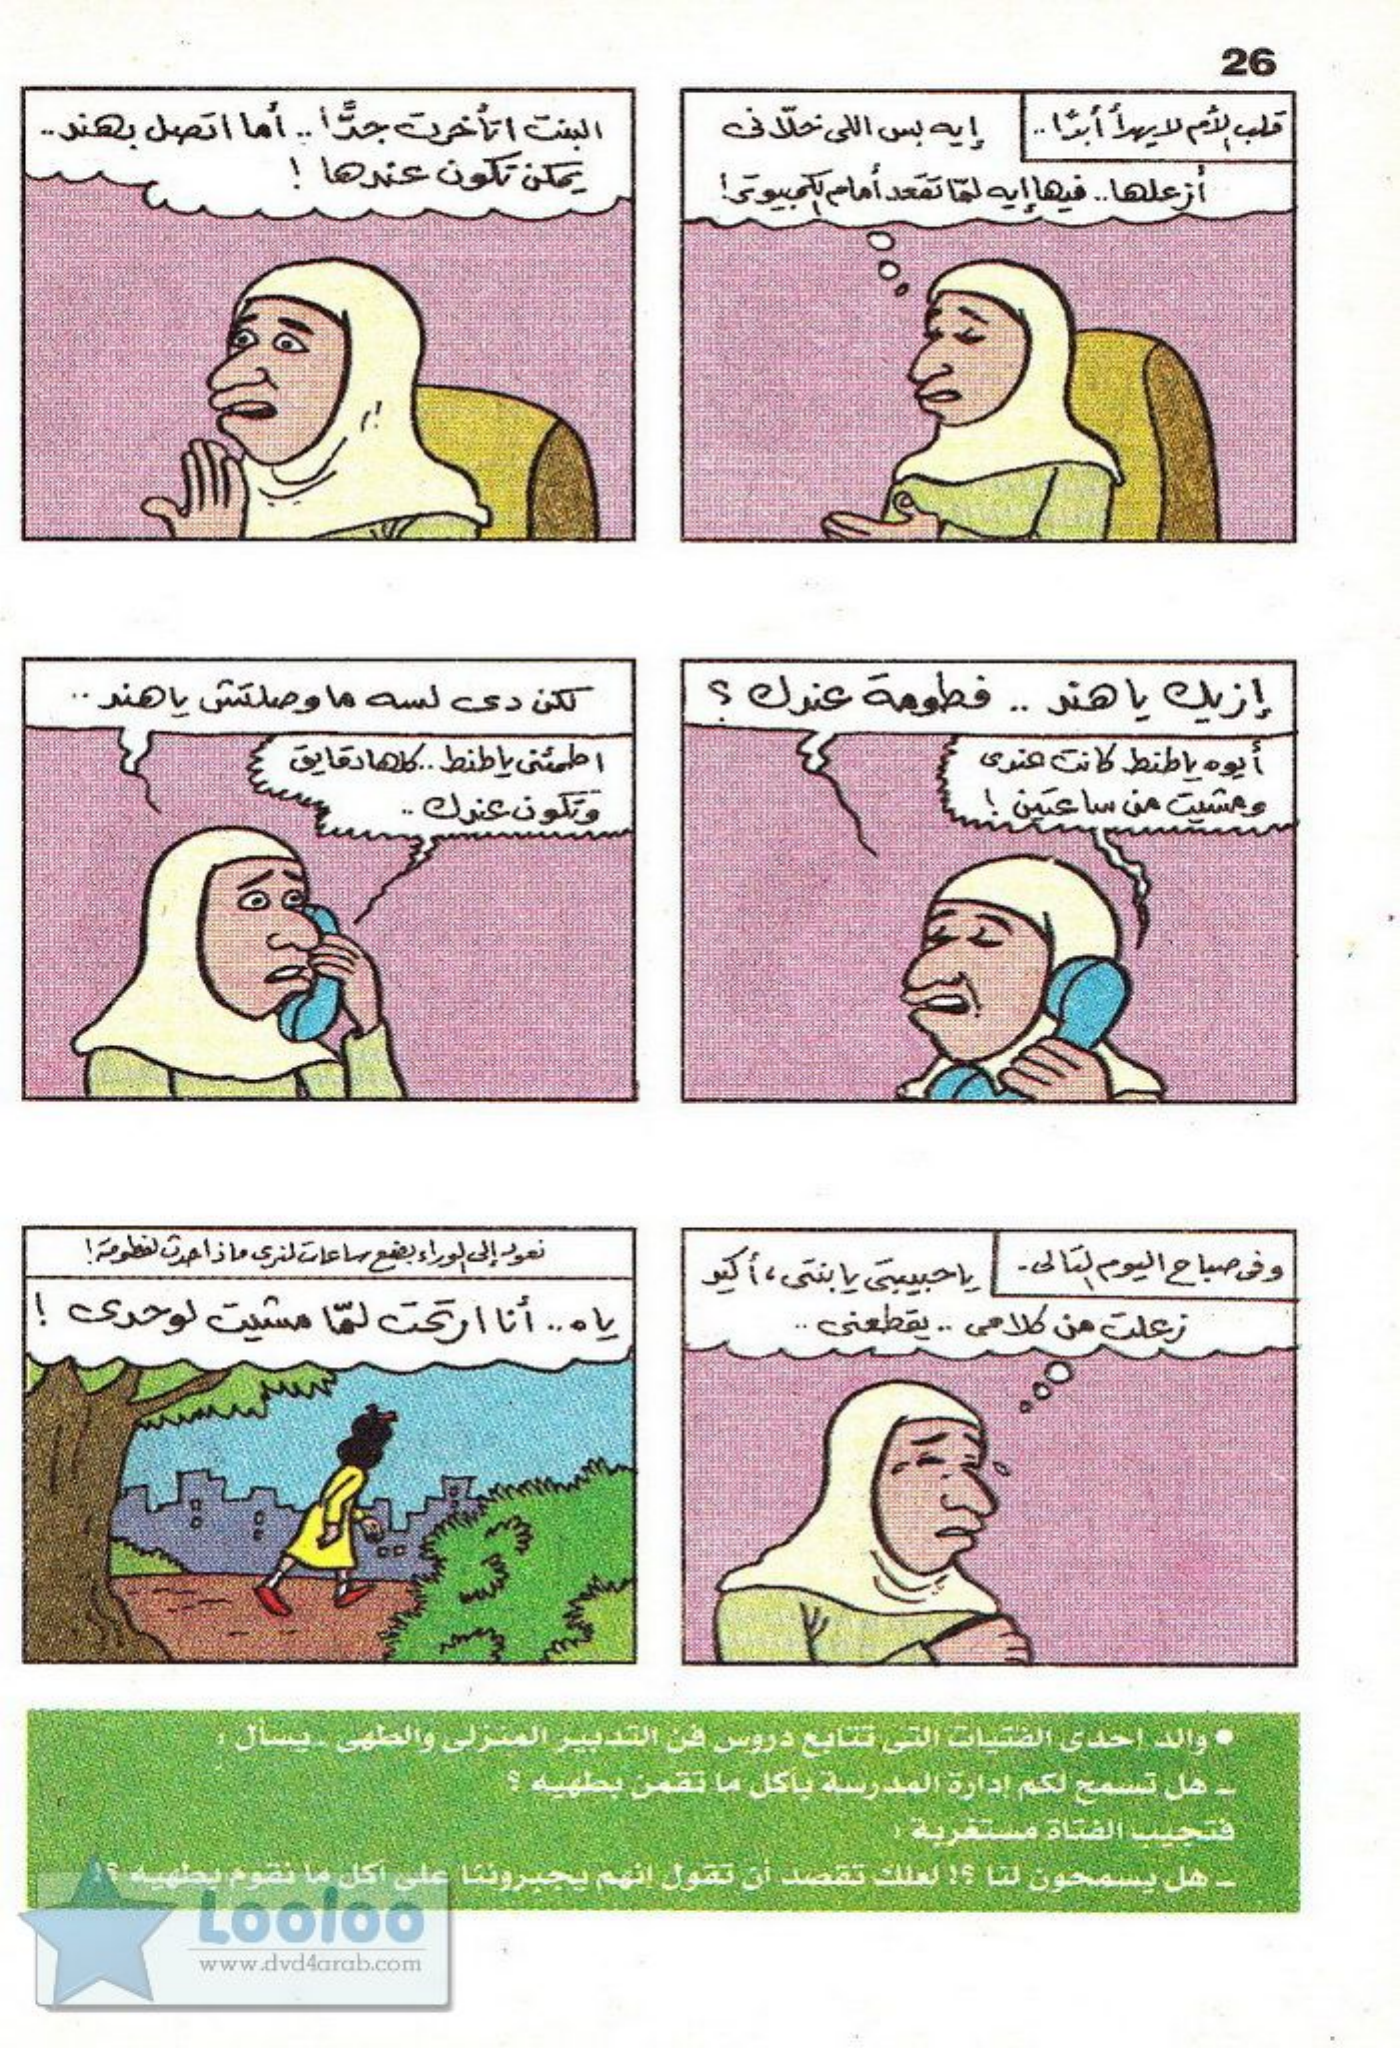 26
قلب الأم لا يهدأ أبدًا..
إيه بس اللى خلّانى
أزعلها.. فيها إيه لمّا تقعد أمام الكمبيوتر!
البنت اتأخرت جدًّا.. أما اتصل بهند..
يمكن تكون عندها !
إزيك يا هند .. فطومة عندك ؟
أيوه يا طنط كانت عندى
ومشيت من ساعتين !
لكن دى لسه ما وصلتش يا هند ..
اطمئنى يا طنط.. كلها دقايق
وتكون عندك ..
وفى صباح اليوم التالى..
يا حبيبتى يا بنتى ، أكيد
زعلت من كلامى .. يقطعنى ..
نعود إلى الوراء بضع ساعات لنرى ماذا حدث لفطومة!
ياه.. أنا ارتحت لمّا مشيت لوحدى !
• والد إحدى الفتيات التى تتابع دروس فن التدبير المنزلى والطهى ـ يسأل :
ـ هل تسمح لكم إدارة المدرسة بأكل ما تقمن بطهيه ؟
فتجيب الفتاة مستغربة :
ـ هل يسمحون لنا ؟! لعلك تقصد أن تقول إنهم يجبروننا على أكل ما نقوم بطهيه ؟!
Looloo
www.dvd4arab.com